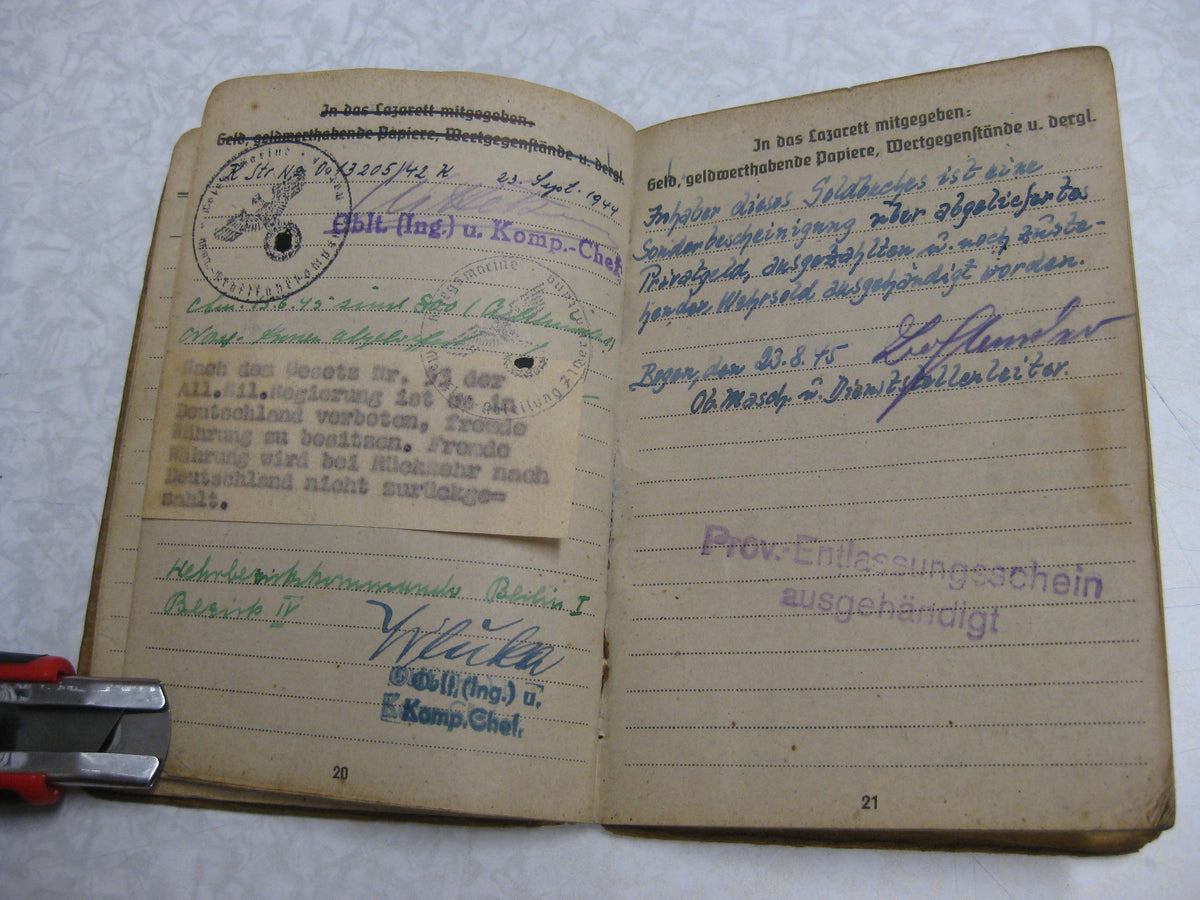 In das Lazarett mitgegeben:
Geld, geldwerthabende Papiere, Wertgegenstände u. dergl.
K Str Na 0013205/42 K 23. Sept. 1944
Oblt. (Ing.) u. Komp.-Chef
sind
Nach dem Gesetz Nr. 53 der
All.Mil.Regierung ist es in
Deutschland verboten, fremde
Währung zu besitzen. Fremde
Währung wird bei Rückkehr nach
Deutschland nicht zurückge-
zahlt.
Wehrbezirkskommando Berlin I
Bezirk IV
Oblt. (Ing.) u.
Komp.Chef.
20
In das Lazarett mitgegeben:
Geld, geldwerthabende Papiere, Wertgegenstände u. dergl.
Inhaber dieses Soldbuches ist eine
Sonderbescheinigung über abgeliefertes
Privatgeld, ausgezahlten u. noch zuste-
henden Wehrsold ausgehändigt worden.
Bogen, den 23.8.45
Ob. Masch. u. Dienststellenleiter.
Prov.-Entlassungsschein
ausgehändigt
21